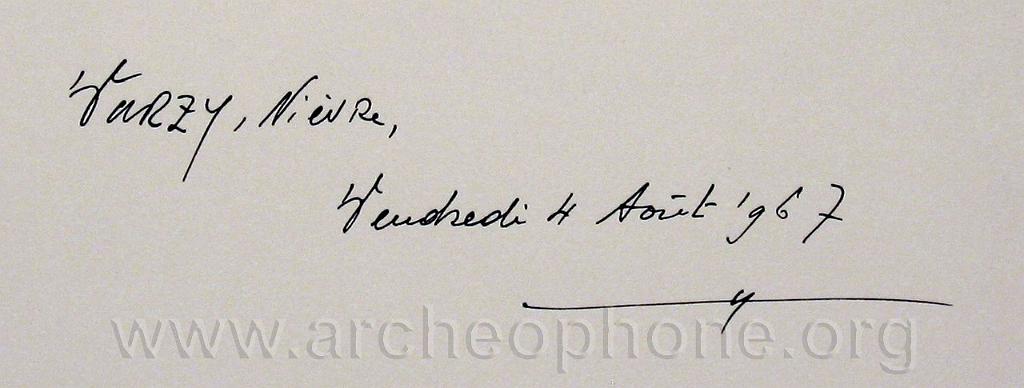 VARZY, Nièvre,
Vendredi 4 Août 1967
www.archeophone.org